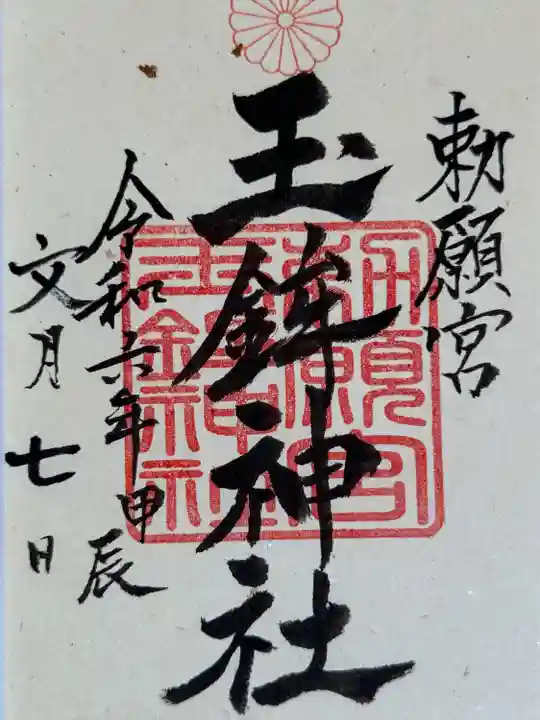 勅願宮
玉鉾神社
令和六年甲辰
文月七日